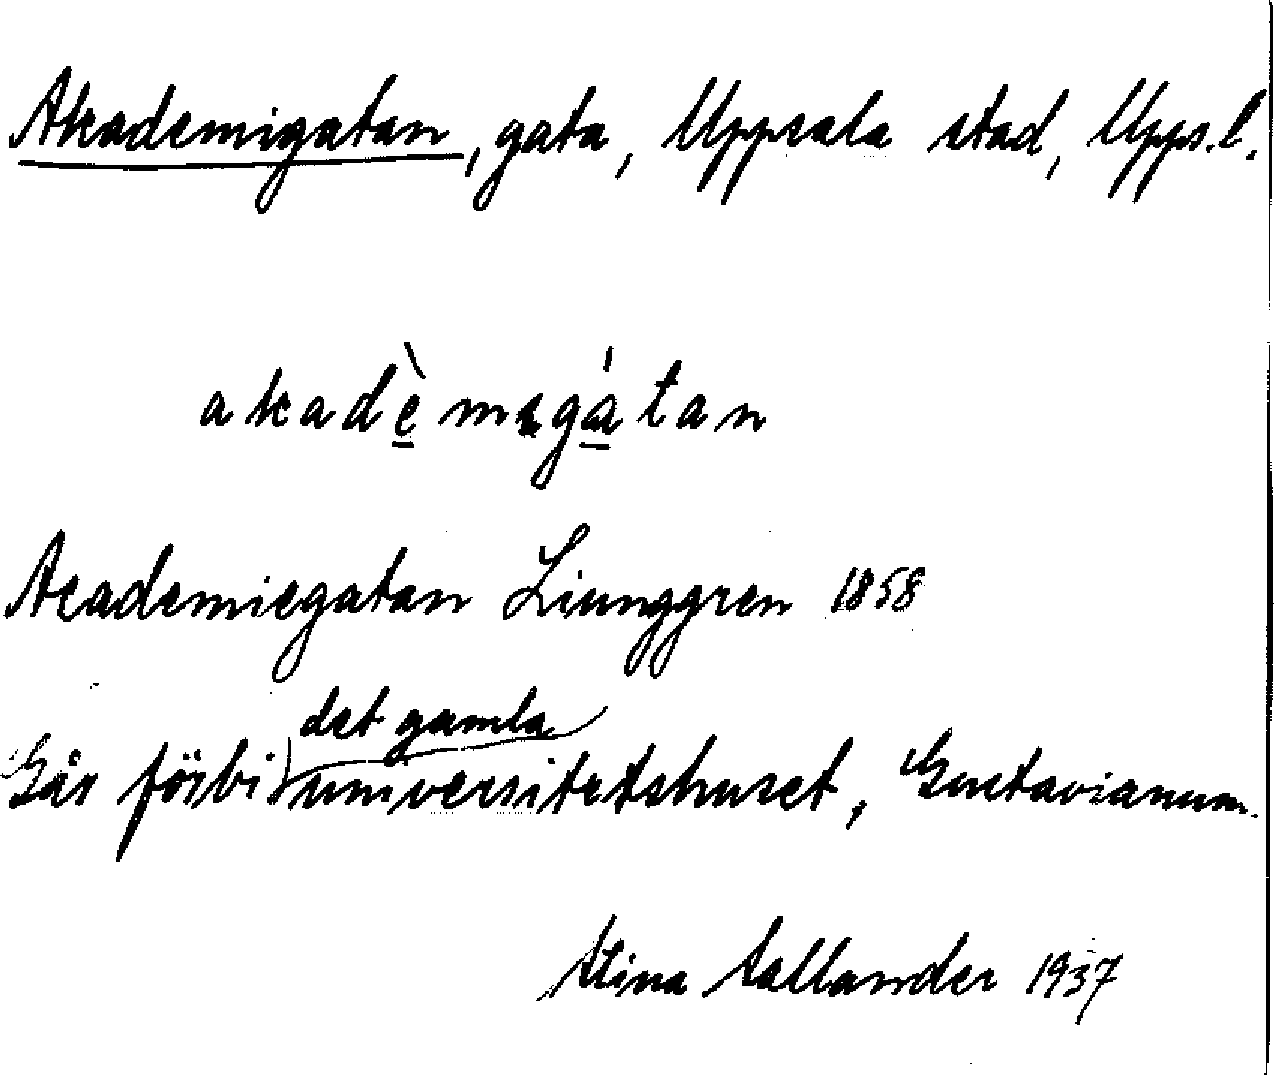 Akademigatan, gata, Uppsala stad, Upps. l.
akadèmıgátan
Academiegatan Liunggren 1858
Går förbi det gamla universitetshuset, Gustavianum.
Stina Sallander 1937